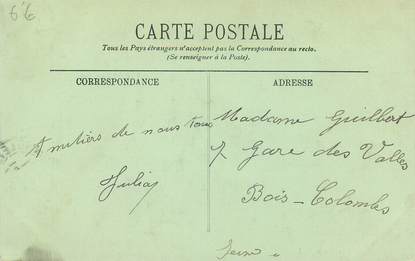 6'6
CARTE POSTALE
Tous les Pays étrangers n'acceptent pas la Correspondance au recto.
(Se renseigner à la Poste).
CORRESPONDANCE
Amitiers de nous tous
Julia
ADRESSE
Madame Guilbert
7 Gare des Valles
Bois-Colombes
Seine